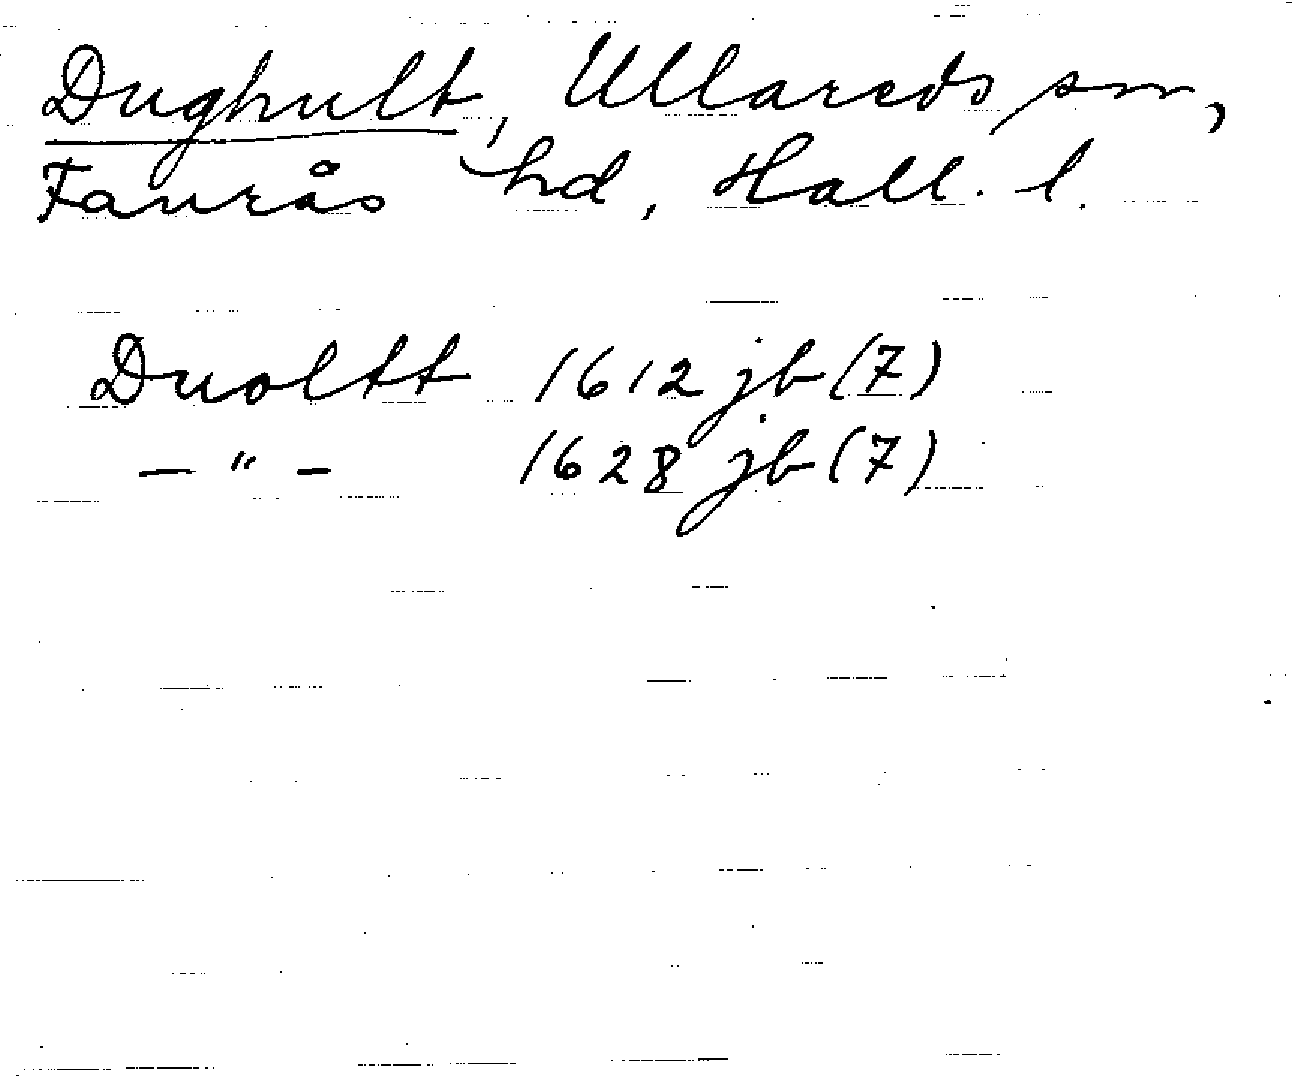 Dughult, Ullareds sn,
Faurås hd, Hall. l.
Duoltt 1612 jb (7)
— " — 1628 jb (7)